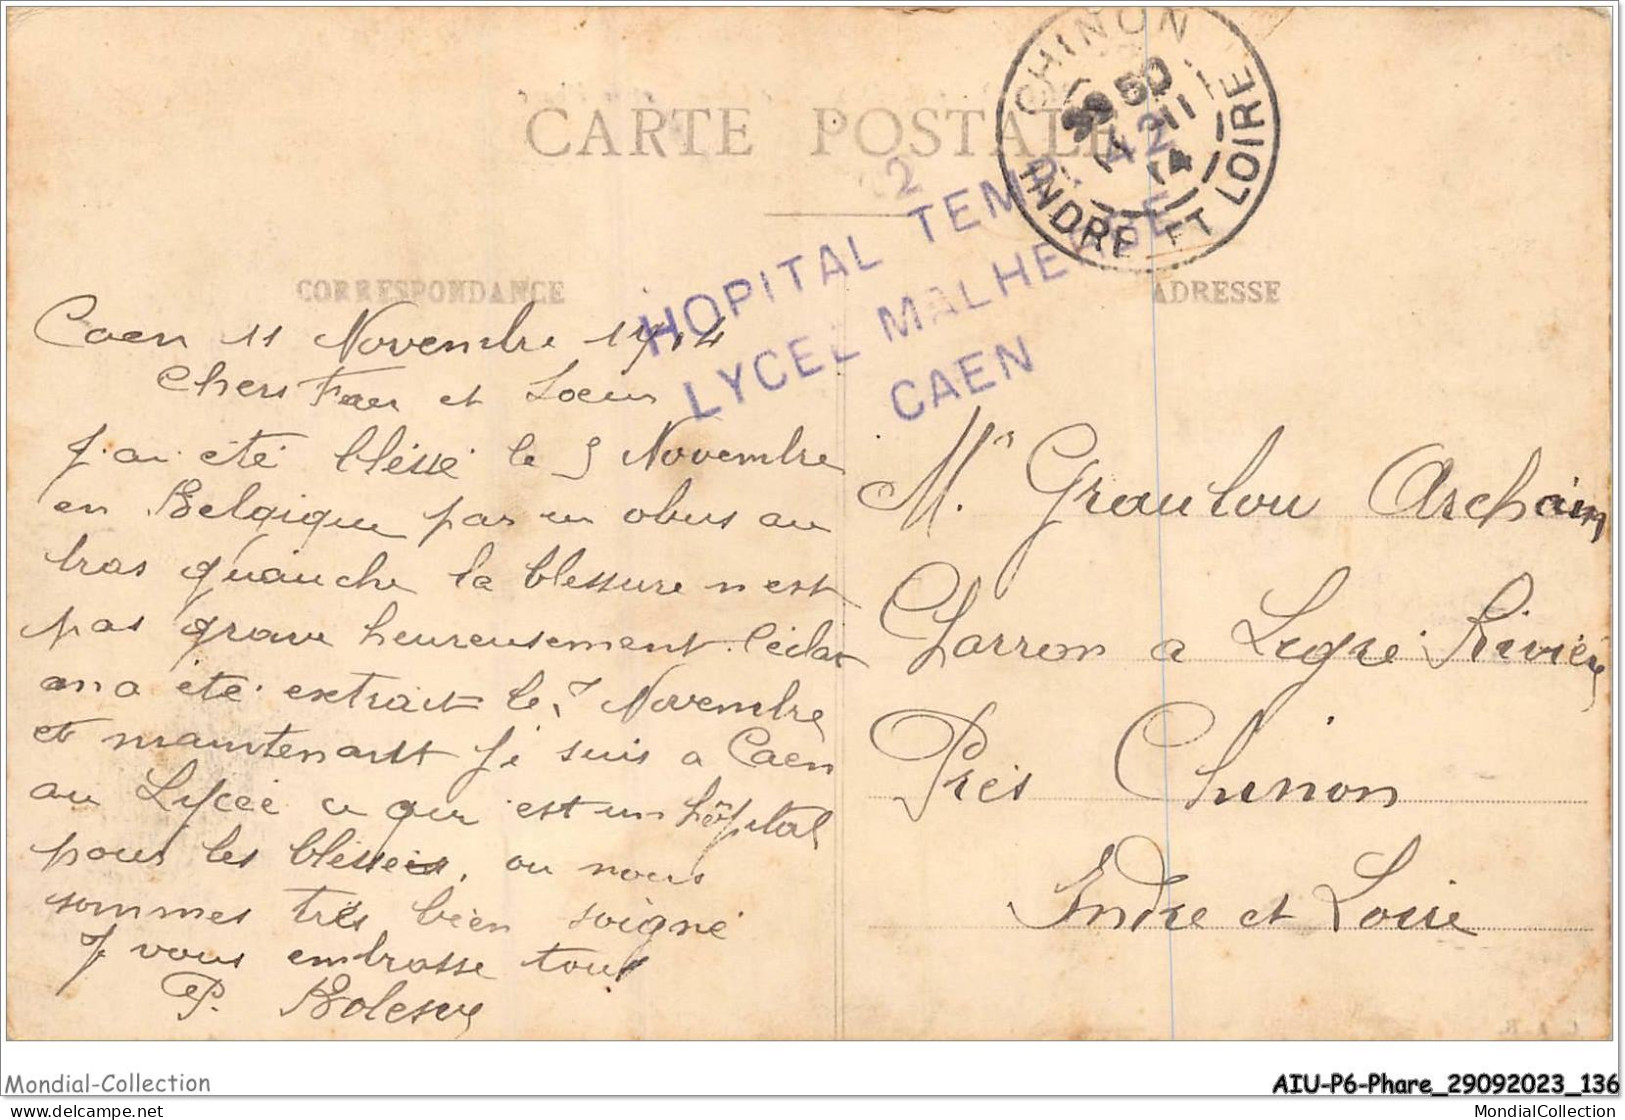 CARTE POSTALE
CHINON
50
14 11
14
INDRE ET LOIRE
2
HOPITAL TEMP. 42
LYCEE MALHERBE
CAEN
CORRESPONDANCE
ADRESSE
Caen 11 Novembre 1914
Chers et Soeur
J'ai été blessé le 5 Novembre
en Belgique par un obus au
bras gauche la blessure n'est
pas grave heureusement l'éclat
m'a été extrait le 7 Novembre
et maintenant je suis a Caen
au Lycée ce qui est un hôpital
pour les blesseés, ou nous
sommes très bien soigné
Je vous embrasse tous
P.
Mr Graulou
Charron a Ligré Rivière
Près Chinon
Indre et Loire
Mondial-Collection
AIU-P6-Phare_29092023_136
delcampe.net
MondialCollection